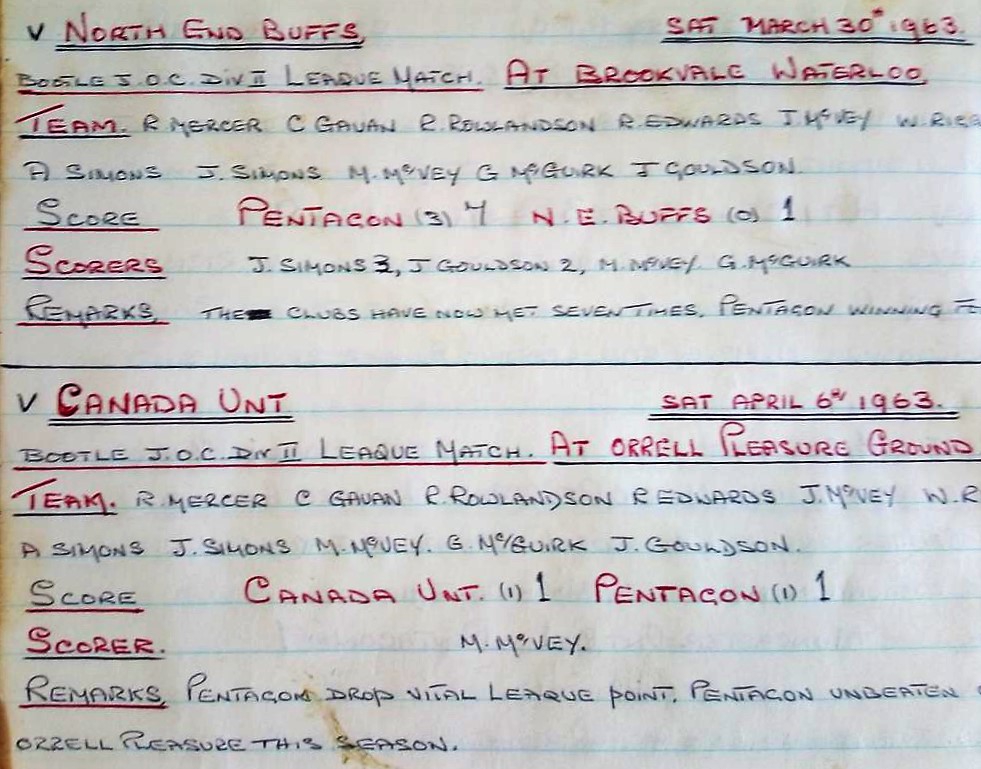 V NORTH END BUFFS, SAT MARCH 30th 1963.
BOOTLE J.O.C. DIV II LEAGUE MATCH. AT BROOKVALE WATERLOO,
TEAM. R MERCER C GAVAN R. ROWLANDSON R. EDWARDS J. McVEY W.
A SIMONS J. SIMONS M. McVEY G McGURK J GOULDSON.
SCORE PENTAGON (3) 7 N.E. BUFFS (0) 1
SCORERS J. SIMONS 3, J GOULDSON 2, M. McVEY G. McGUIRK
REMARKS, THE CLUBS HAVE NOW MET SEVEN TIMES, PENTAGON WINNING
V CANADA UNT SAT APRIL 6th 1963.
BOOTLE J.O.C. DIV II LEAGUE MATCH. AT ORRELL PLEASURE GROUND
TEAM. R. MERCER C GAVAN R. ROWLANDSON R EDWARDS J. McVEY W. R
A SIMONS J. SIMONS M. McVEY. G. McGUIRK J. GOULDSON.
SCORE CANADA UNT. (1) 1 PENTAGON (1) 1
SCORER. M. McVEY.
REMARKS, PENTAGON DROP VITAL LEAGUE POINT, PENTAGON UNBEATEN
ORRELL PLEASURE THIS SEASON.